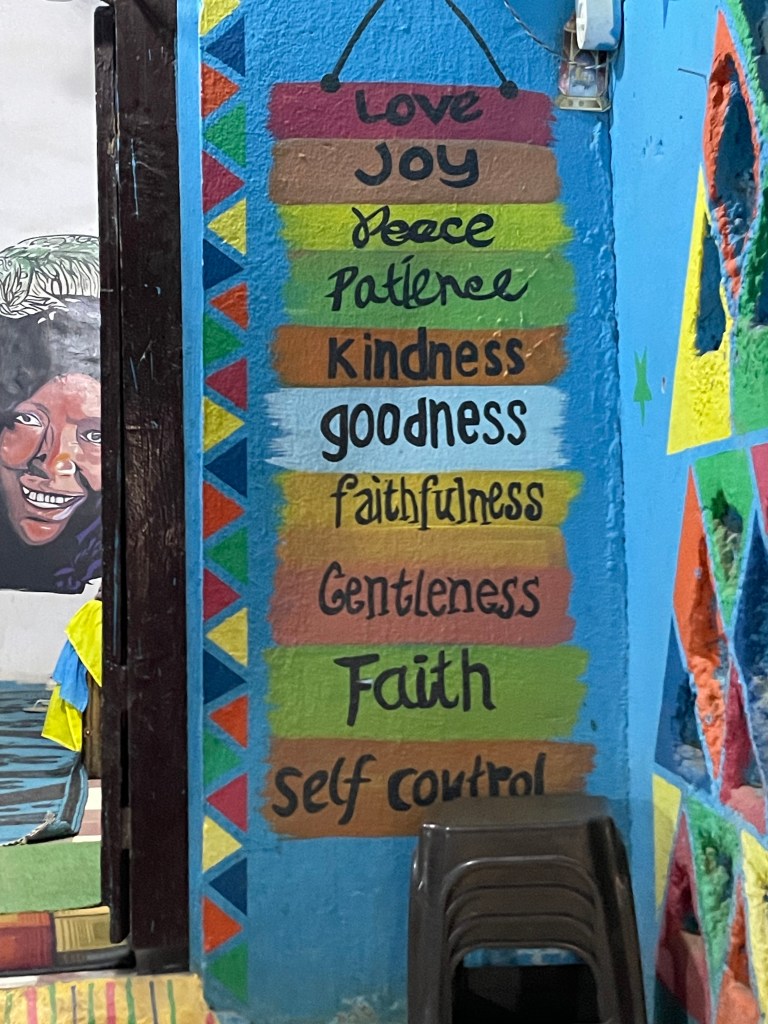 Love
Joy
Peace
Patience
Kindness
goodness
faithfulness
Gentleness
Faith
self control